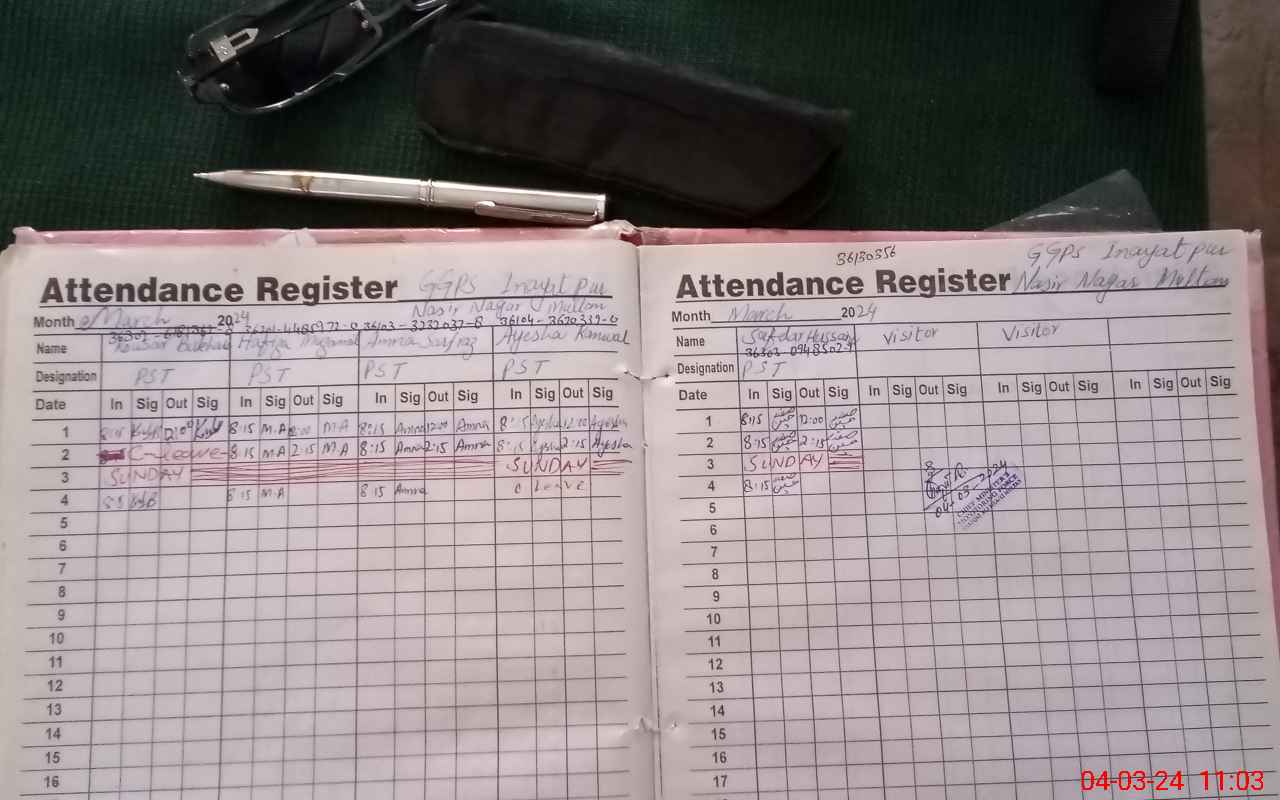 Attendance Register GGPS Inayat Pur
Nasir Nagar Multan
Month March 2024
36104-3620339-0
Name Kausar Hafiza Amna Sarfraz Ayesha Kanwal
Designation PST PST PST PST
Date In Sig Out Sig In Sig Out Sig In Sig Out Sig In Sig Out Sig
1 8:15 12:00 8:15 M.A 12:00 M.A 8:15 Amna 12:00 Amna 8:15 Ayesha 12:00 Ayesha
2 C-leave 8:15 M.A 2:15 M.A 8:15 Amna 2:15 Amna 8:15 Ayesha 2:15 Ayesha
3 SUNDAY SUNDAY
4 8:15 M.A 8:15 Amna C Leave
5
6
7
8
9
10
11
12
13
14
15
16
36130356
GGPS Inayat Pur
Attendance Register Nasir Nagar Multan
Month March 2024
Name Safdar Hussain Visitor Visitor
36302-0948502-9
Designation PST
Date In Sig Out Sig In Sig Out Sig In Sig Out Sig In Sig Out Sig
1 8:15 صفدر حسین 12:00 صفدر حسین
2 8:15 صفدر حسین 2:15 صفدر حسین
3 SUNDAY
4 8:15 صفدر حسین
04-03-2024
CHIEF MINISTER'S
MONITORING FORCE
5
6
7
8
9
10
11
12
13
14
15
16
17
04-03-24 11:03